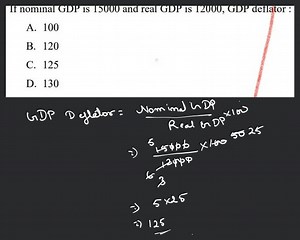 If nominal GDP is 15000 and real GDP is 12000, GDP deflator :
A. 100
B. 120
C. 125
D. 130
GDP Deflator = Nominal GDP / Real GDP × 100
⇒ 15000 / 12000 × 100 50 25
5
6 3
⇒ 5 × 25
⇒ 125